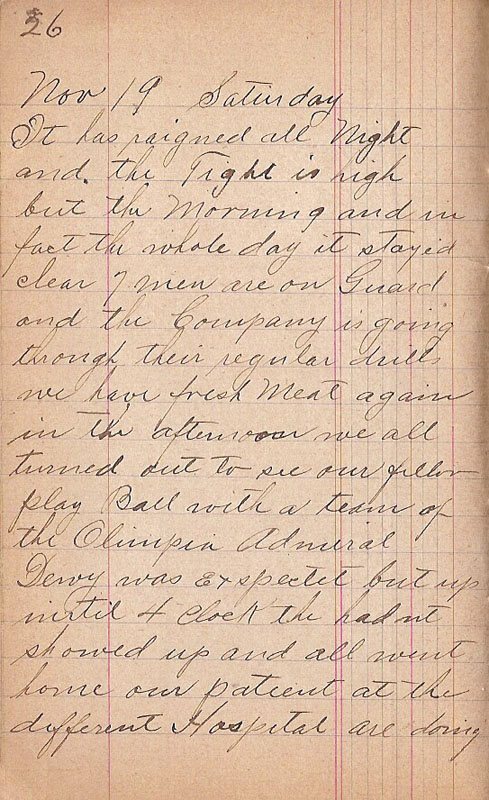 26
Nov 19 Saturday
It has raigned all Night
and. the Tight is high
but the Morning and in
fact the whole day it stayed
clear 7 men are on Guard
and the Company is going
through their regular drills
we have fresh Meat again
in the afternoon we all
turned out to see our fellow
play Ball with a team of
the Olimpia Admiral
Dewy was Expectet but up
until 4 Clock the hadnt
showed up and all went
home our patient at the
different Hospital are doing